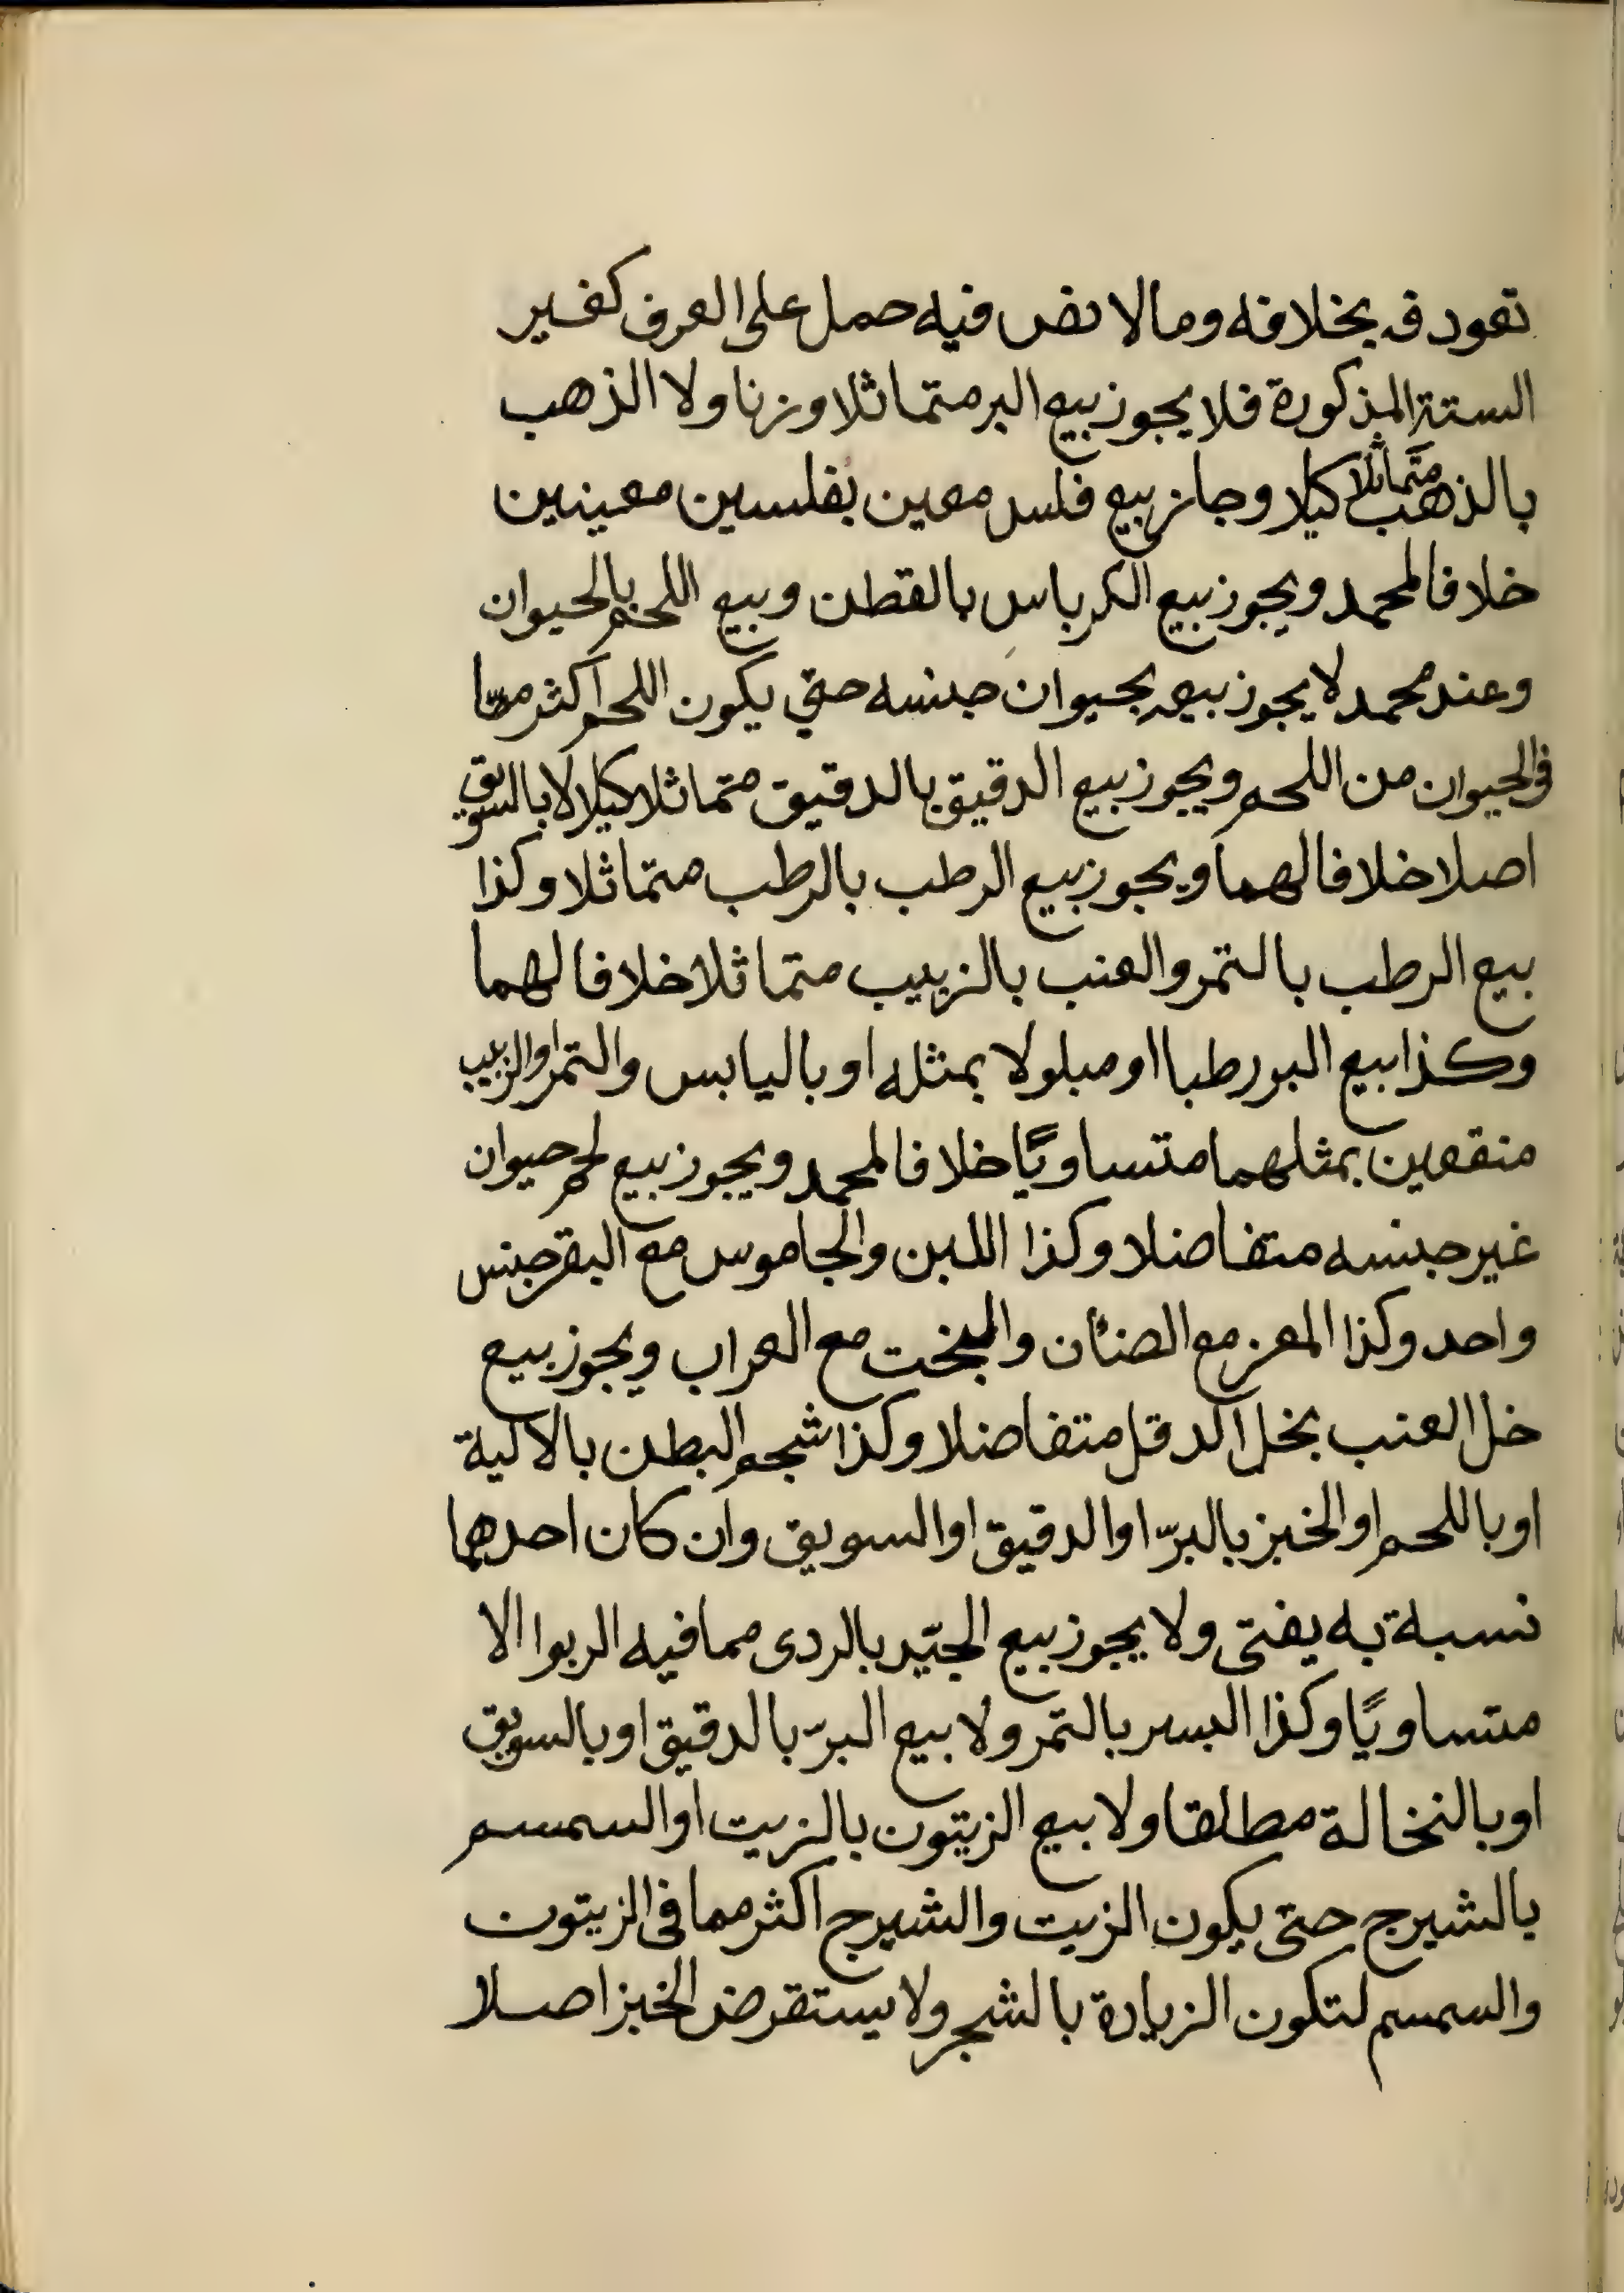 تعورف بخلافه ومالا نص فيه حمل على العرف كغير
الستة المذكورة فلا يجوز بيع البر متماثلا وزنا ولا الذهب
بالذهب متماثلا كيلا وجاز بيع فلس معين بفلسين معينين
خلافا لمحمد ويجوز بيع الكرباس بالقطن وبيع اللحم بالحيوان
وعند محمد لا يجوز بيعه بحيوان جنسه حتي يكون اللحم اكثر مما
في الحيوان من اللحم ويجوز بيع الدقيق بالدقيق متماثلا كيلا لا بالسويق
اصلا خلافا لهما ويجوز بيع الرطب بالرطب متماثلا وكذا
بيع الرطب بالتمر والعنب بالزبيب متماثلا خلافا لهما
وكذا بيع البر رطبا او مبلولا بمثله او باليابس والتمر او الزبيب
منقعين بمثلهما متساويًا خلافا لمحمد ويجوز بيع لحم حيوان
غير جنسه متفاضلا وكذا اللبن والجاموس مع البقر جنس
واحد وكذا المعز مع الضئان والبخت مع العراب ويجوز بيع
خل العنب بخل الدقل متفاضلا وكذا شجم البطن بالالية
او باللحم او الخبز بالبرّ او الدقيق او السويق وان كان احدهما
نسبة به يفتى ولا يجوز بيع الجيّد بالردى مما فيه الربوا الا
متساويًا وكذا البسر بالتمر ولا بيع البرّ بالدقيق او بالسويق
او بالنخالة مطلقا ولا بيع الزيتون بالزيت او السمسم
بالشيرج حتى يكون الزيت والشيرج اكثر مما فى الزيتون
والسمسم لتكون الزيادة بالشجر ولا يستقرض الخبز اصلا